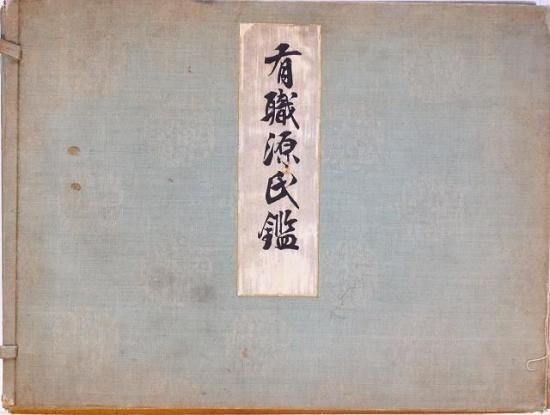 有職源氏鑑